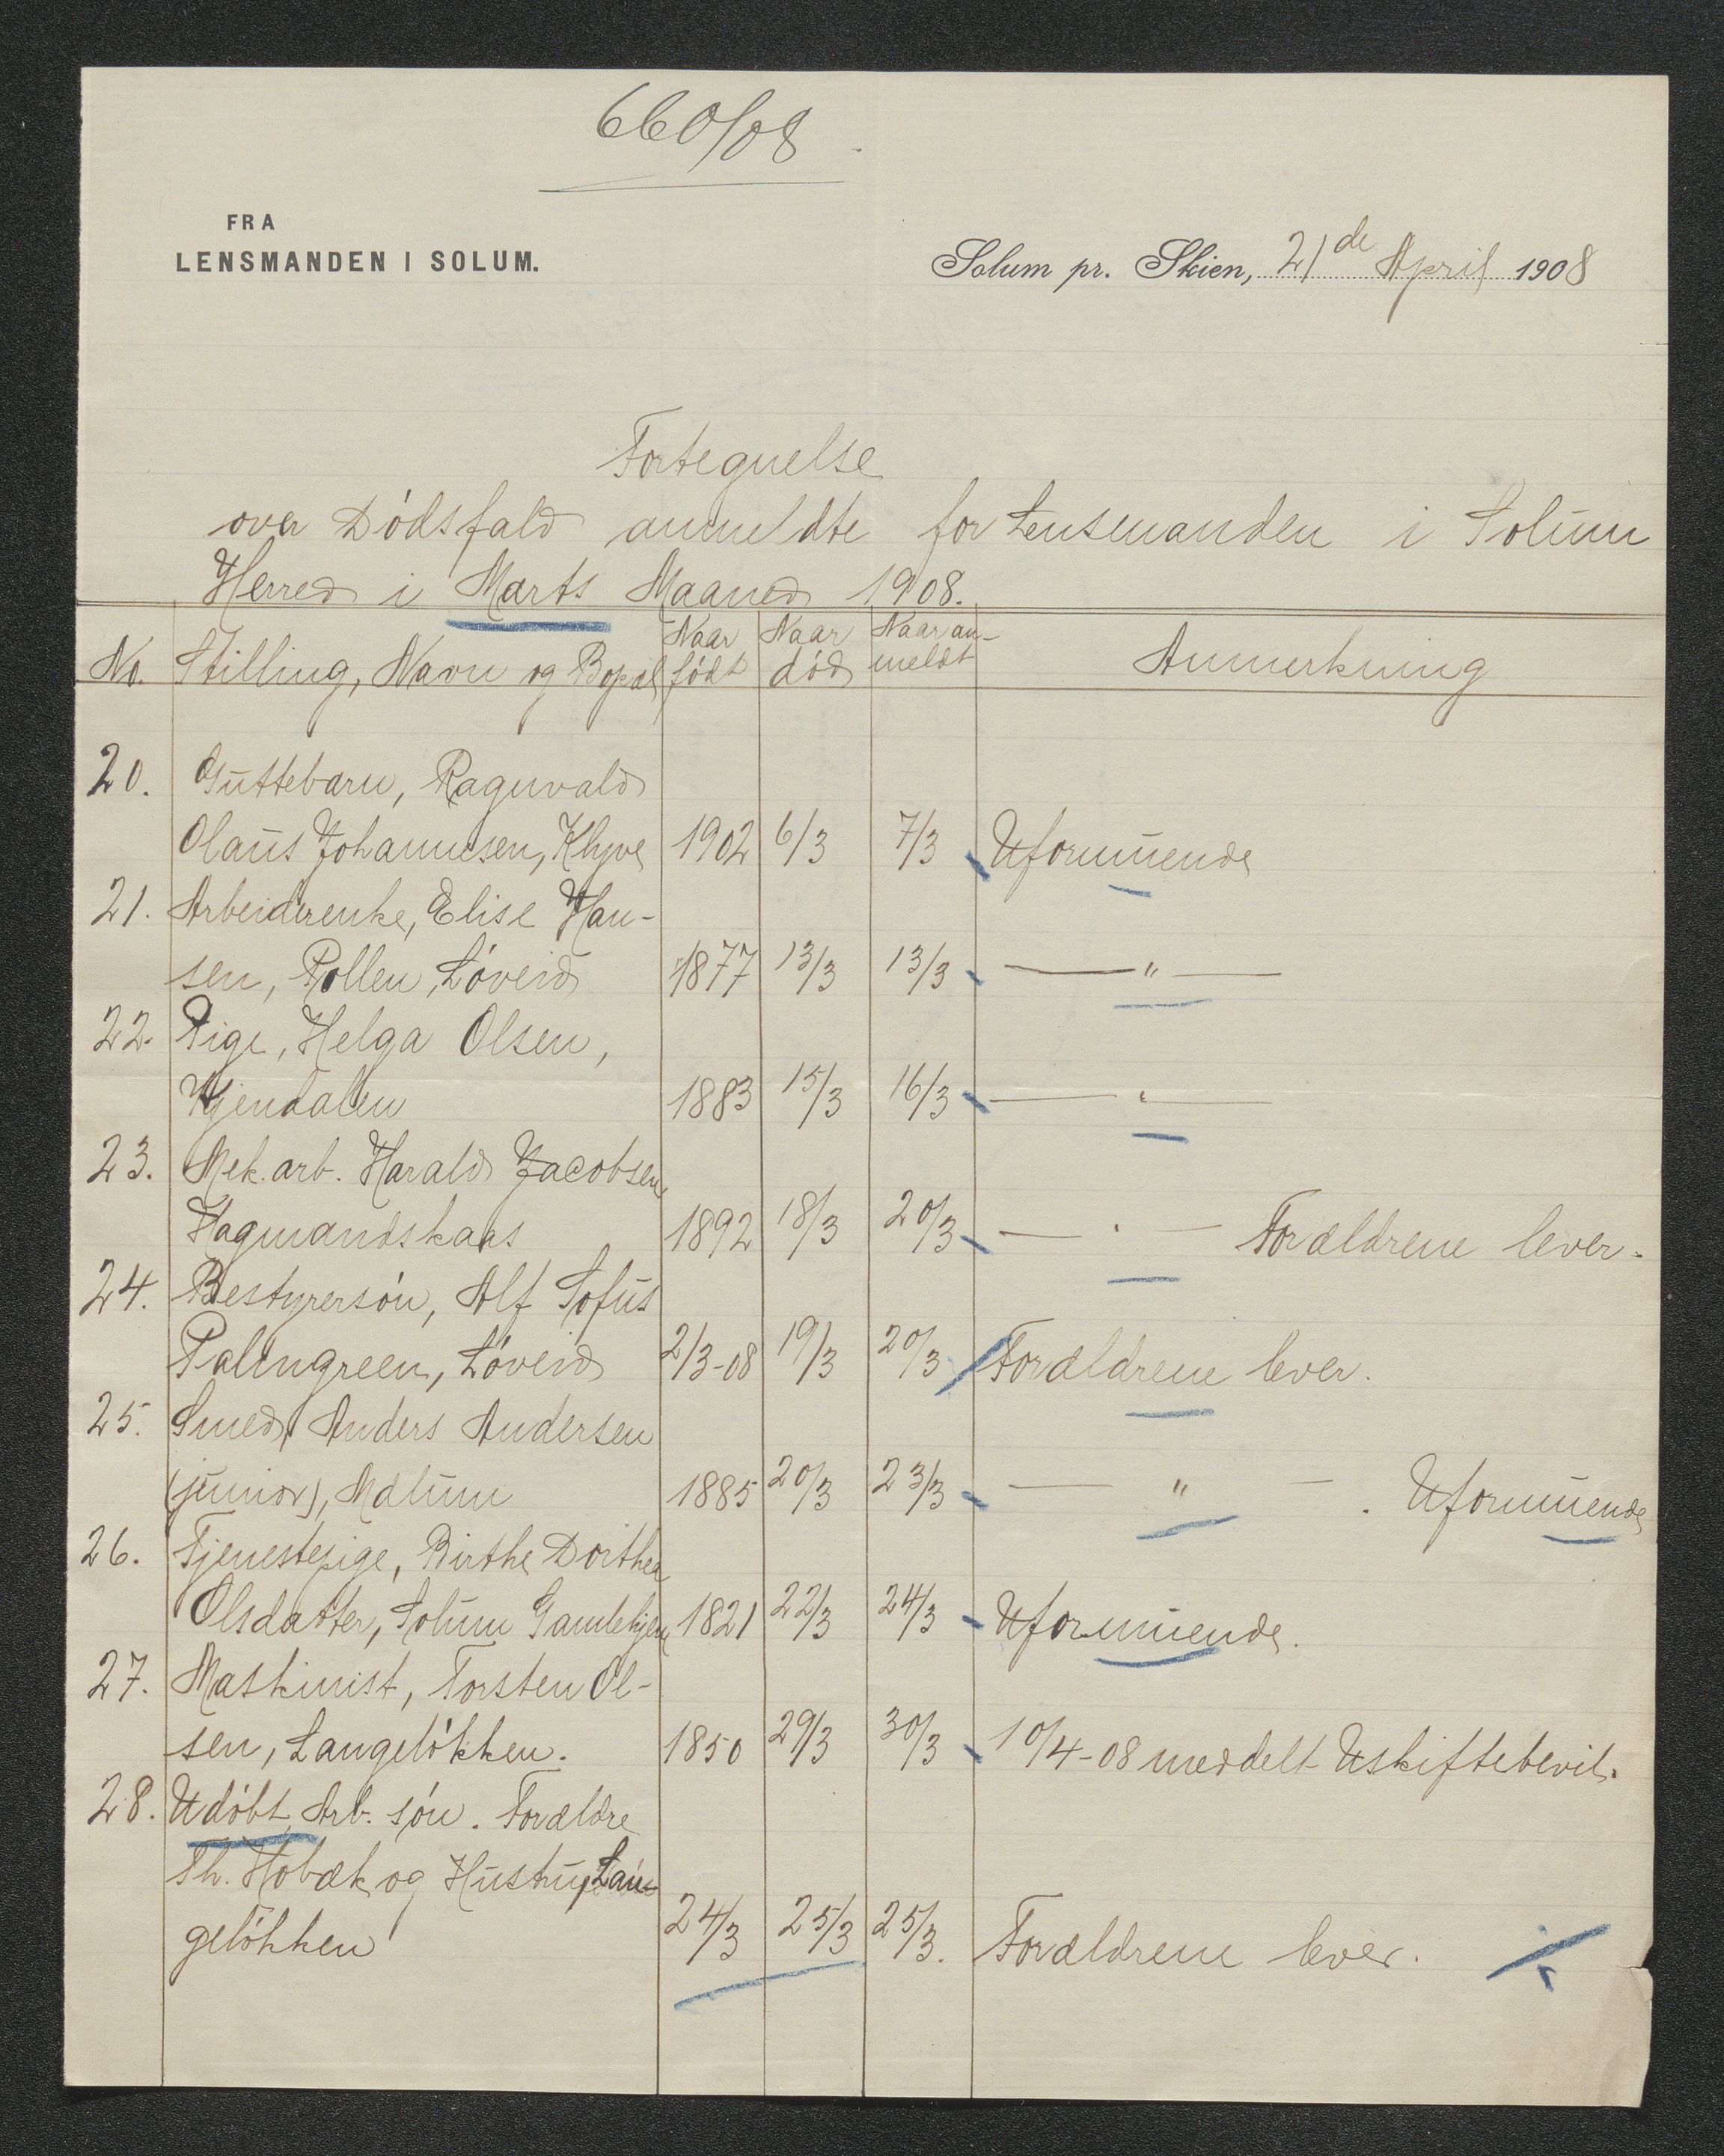 660/08
FRA
LENSMANDEN I SOLUM.
Solum pr. Skien, 21de April 1908
Fortegnelse
over Dödsfald anmeldte for Lensmanden i Solum
Herred i Marts Maaned 1908.
No. Stilling, Navn og Bopæl Naar födt Naar död Naar an-meldt Anmerkning
20. Guttebarn, Ragnvald
Olaus Johannesen, Klyve 1902 6/3 7/3 Uformuende
21. Arbeiderenke, Elise Han-
sen, Pollen, Löveid 1877 13/3 13/3 — " —
22. Pige, Helga Olsen,
Gjendalen 1883 15/3 16/3 — " —
23. Mek. arb. Harald Jacobsen
Hagmandskaas 1892 18/3 20/3 — " — Forældrene lever.
24. Bestyrersön, Alf Sofus
Palmgreen, Löveid 2/3-08 19/3 20/3 Forældrene lever.
25. Smed Anders Andersen
(junior), Mælum 1885 20/3 23/3 — " — . Uformuende
26. Tjenestepige, Birthe Dorthea
Olsdatter, Solum Gamlehjem 1821 22/3 24/3 Uformuende.
27. Maskinist, Torsten Ol-
sen, Langelökken. 1850 29/3 30/3 10/4-08 meddelt Uskiftebevil.
28. Udöbt Arb. sön. Forældre
Th. Hobæk og Hustru, Lan-
gelökken 24/3 25/3 25/3. Forældrene lever.